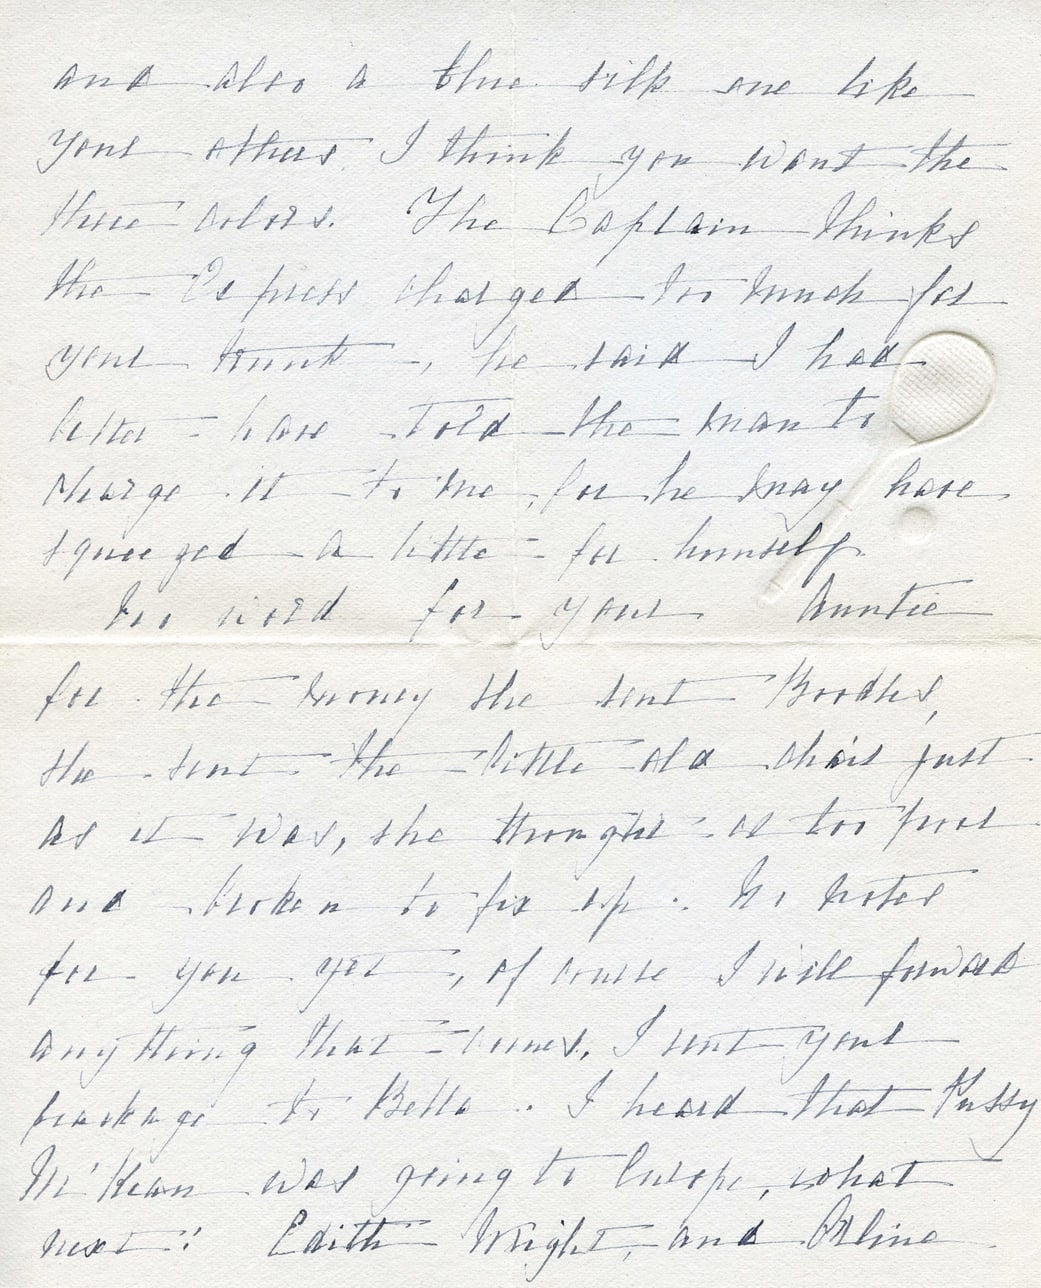 and also a blue silk one like
your others. I think you want the
three colors. The Captain thinks
the Express charged too much for
your trunk, he said I had
better have told the man to
charge it to me, for he may have
squeezed a little for himself.
No word for your Auntie
for the money she sent Boodles,
she sent the little old chair just
as it was, she thought it too poor
and broken to fix up. No notes
for you yet, of course I will forward
anything that comes. I sent your
package to Bella. I heard that Pussy
McKean was going to Europe, what
next! Edith Wright, and Oline